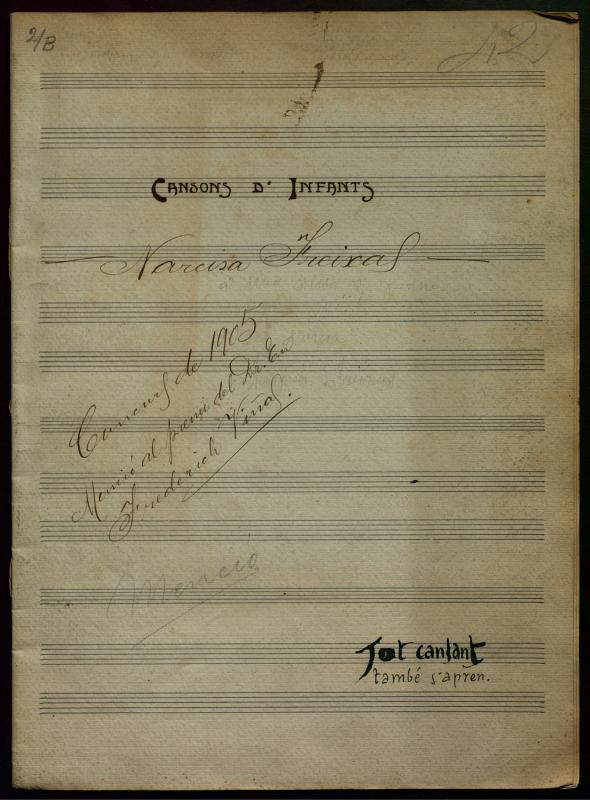 2/B
42
CANSONS D' INFANTS
Narcisa Freixas
Concurs de 1905
Menció al premi del Dr. En
Frederich Viñas.
Menció
Tot cantant
també s'apren.